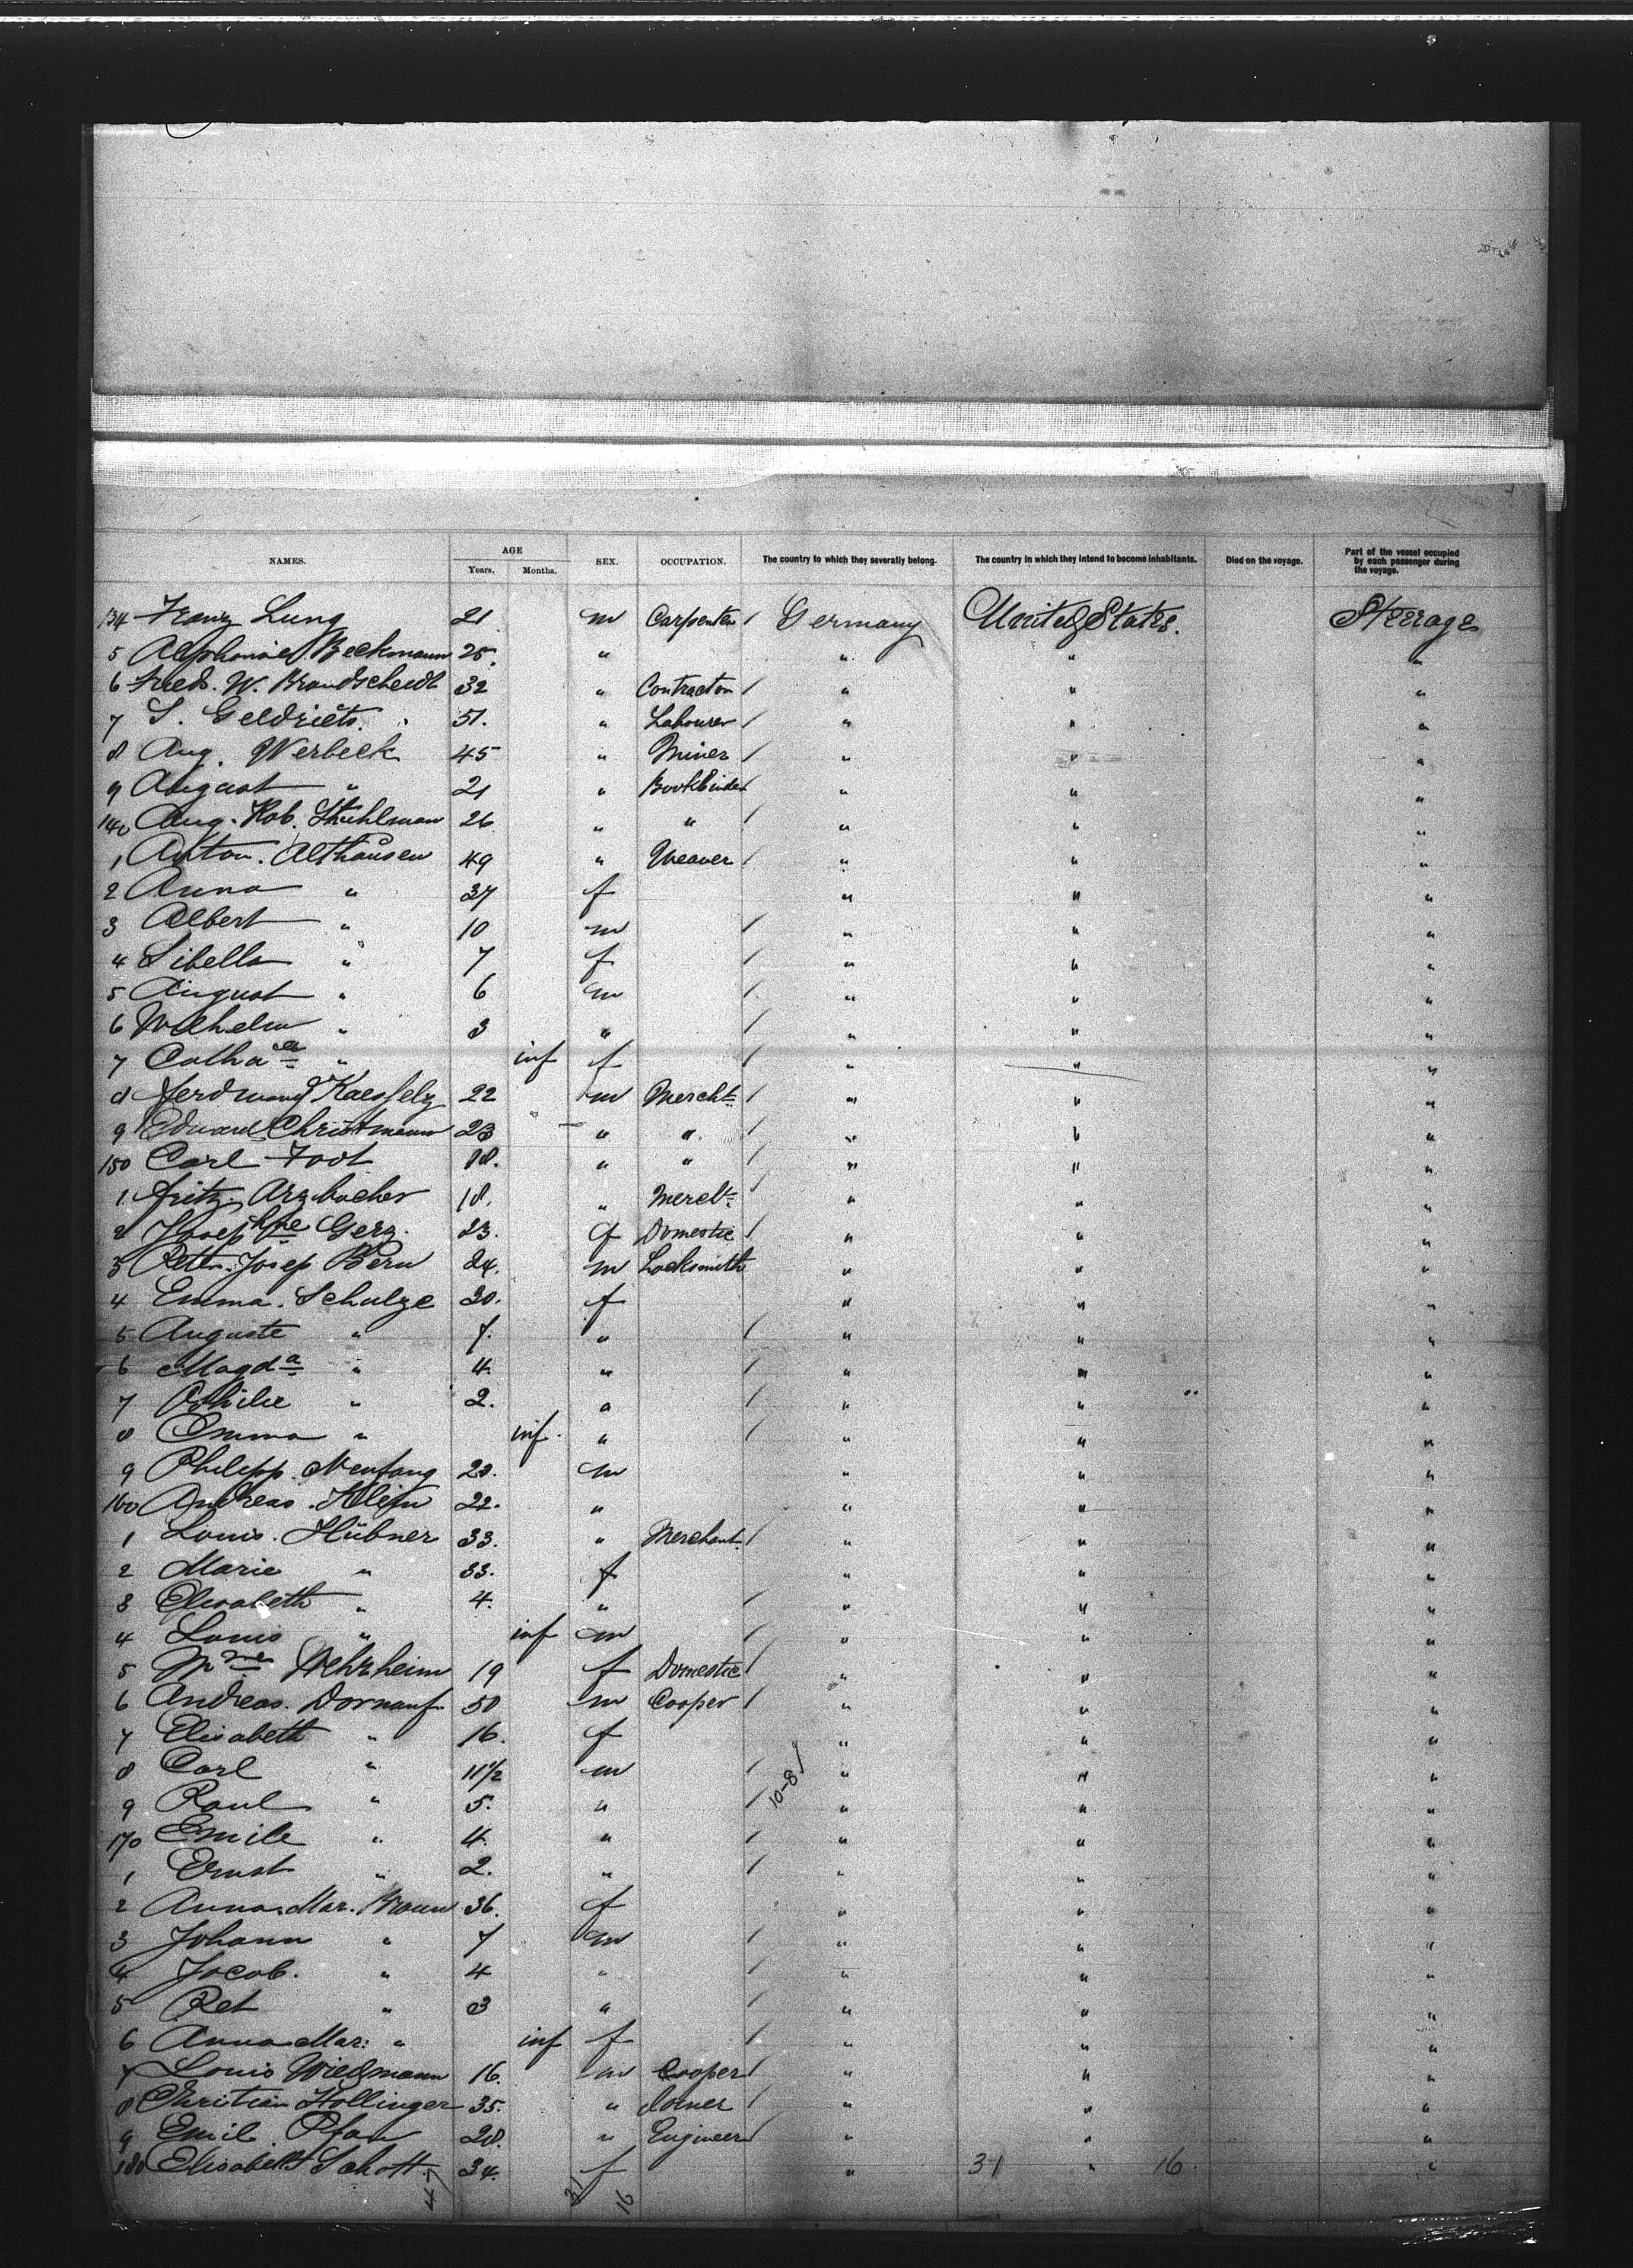 NAMES. AGE Years. Months. SEX. OCCUPATION. The country to which they severally belong. The country in which they intend to become inhabitants. Died on the voyage. Part of the vessel occupied by each passenger during the voyage.
134 Franz Lung 21 m Carpenter / Germany United States. Steerage
5 Alphonse Beckmann 25. " " " "
6 Fred. W. Brandscheidt 32 " Contractor / " " "
7 S. Geldriets. 51. " Labourer / " " "
8 Aug. Werbeck 45 " Miner / " " "
9 August " 21 " Bookbinder " " "
140 Aug. Rob. Stuhlman 26 " " / " " "
1 Anton. Althausen 49 " Weaver / " " "
2 Anna " 37 f " " "
3 Albert " 10 m / " " "
4 Sibella " 7 f / " " "
5 August " 6 m / " " "
6 Wilhelm " 3 " / " " "
7 Catha " inf f / " " "
8 Ferdinand 22 m Mercht / " " "
9 Eduard Christmann 23 " " / " " "
150 Carl 18. " " / " " "
1. Fritz Arzbacher 18. " Mercht / " " "
2 Josephine Gerz. 23. f Domestic / " " "
3 Peter Josep Bern 24. m Locksmith " " "
4 Emma. Schulze 30. f " " "
5 Auguste " 7. " / " " "
6 Magda " 4. " / " " "
7 Othilie " 2. " / " " "
8 Emma " inf. " / " " "
9 Philipp. Neufang m " " "
160 Andreas. Klein 22. " " " "
1 Louis. Hübner 33. " Merchant / " " "
2 Marie " 33. f " " "
3 Elisabeth " 4. " / " " "
4 Louis " inf m / " " "
5 Wehrheim 19 f Domestic / " " "
6 Andreas. Dornauf 50 m Cooper / " " "
7 Elisabeth " 16. f " " "
8 Carl " 11 1/2 m / 10-8/ " " "
9 Paul " 5. " / " " "
170 Emile " 4. " / " " "
1 Ernst " 2. " / " " "
2 Anna Mar. Braun 36. f " " "
3 Johann " 7 m / " " "
4 Jacob. " 4 " / " " "
5 Pet " 3 " / " " "
6 Anna Mar: " inf f / " " "
7 Louis Wiedmann 16. m Cooper / " " "
8 Christian Hollinger 35. " / " " "
9 Emil Pfau 28. " Engineer / " " "
180 Elisabeth Schott. 34. f " 31 " 16. "
47 31 16